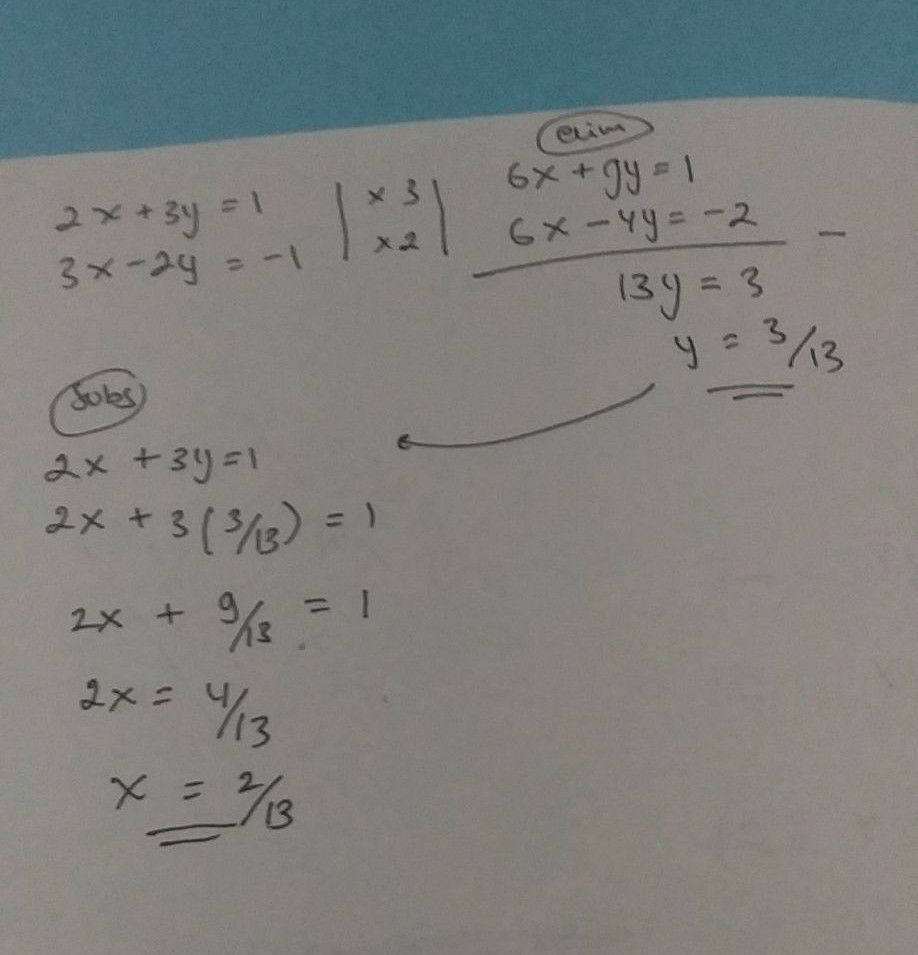 2x + 3y = 1 | x 3 |
3x - 2y = -1 | x 2 |
elim
6x + 9y = 1
6x - 4y = -2 -
13y = 3
y = 3/13
Subs
2x + 3y = 1
2x + 3(3/13) = 1
2x + 9/13 = 1
2x = 4/13
x = 2/13